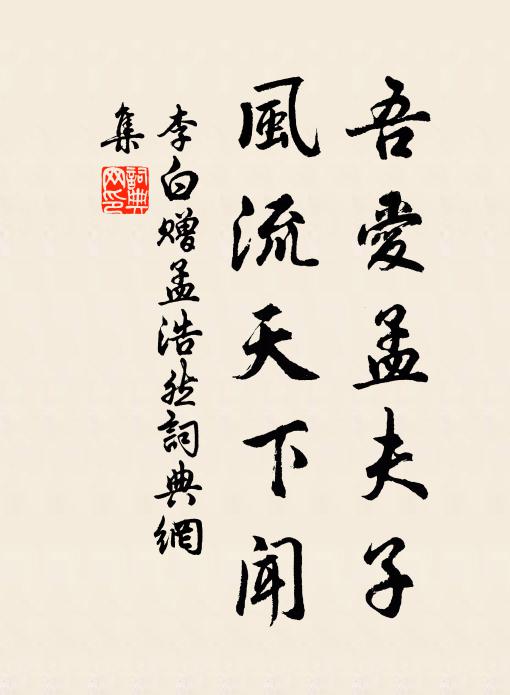 吾愛孟夫子
風流天下聞
李白贈孟浩然詞典網
集
詞典
網印